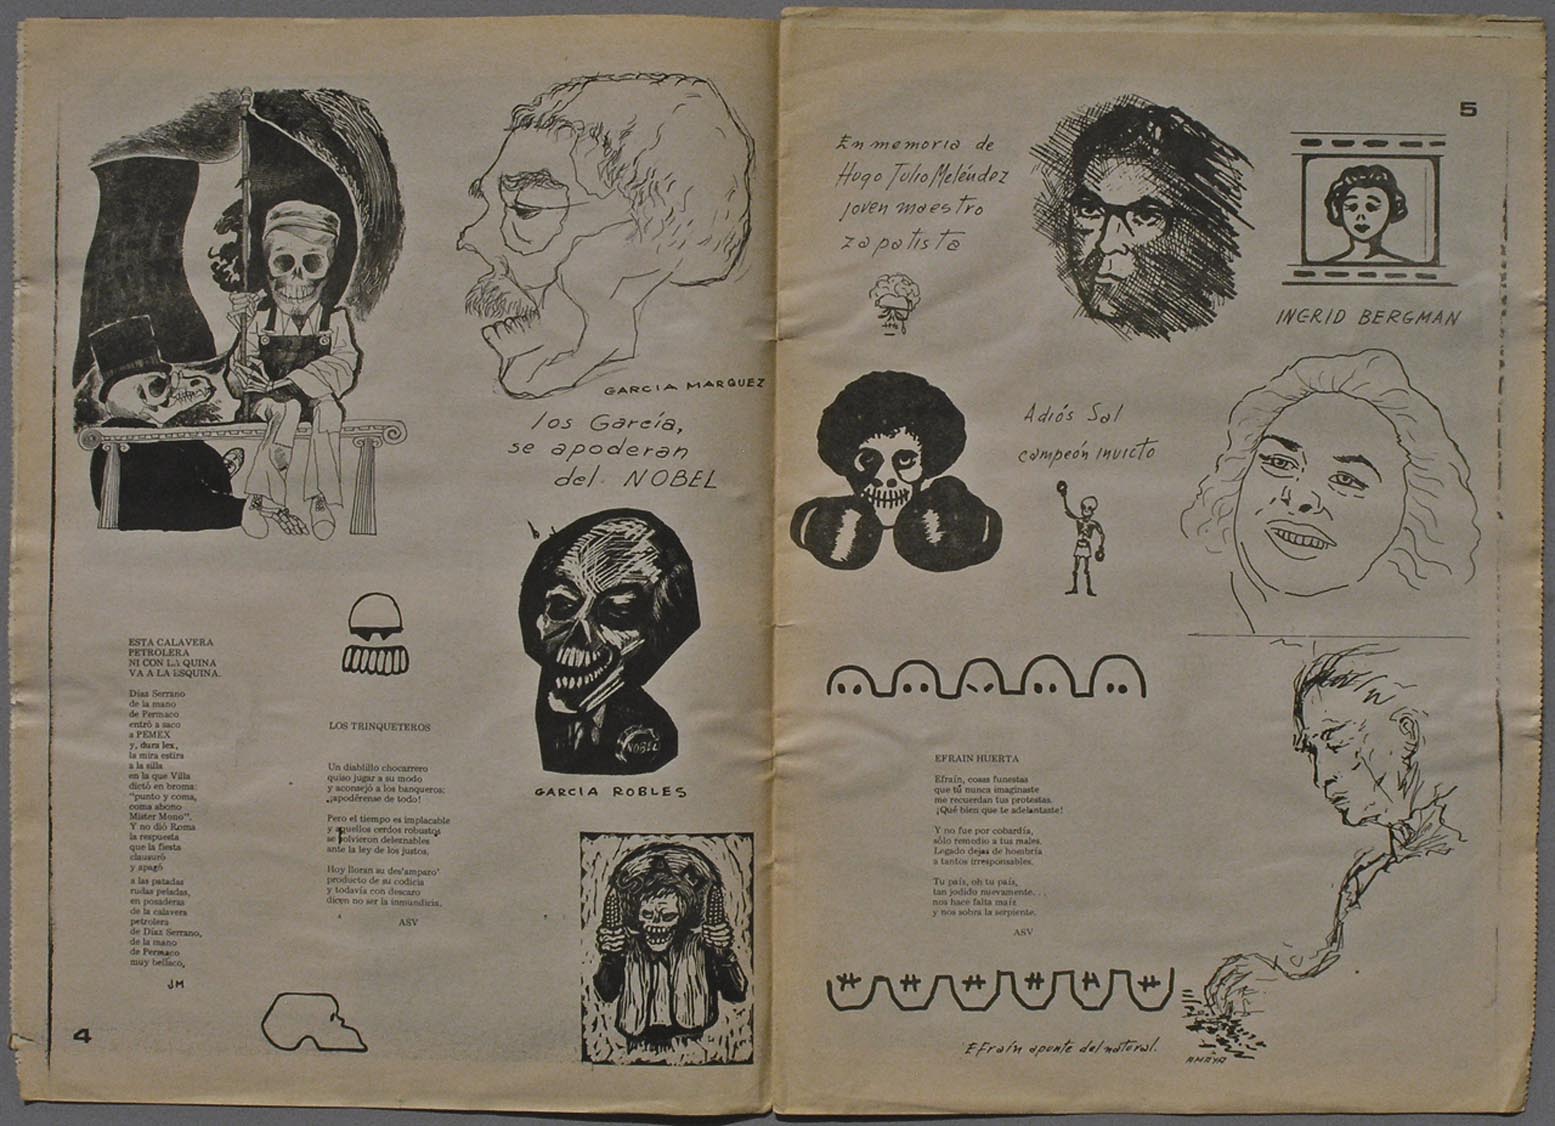 GARCIA MARQUEZ
los García,
se apoderan
del NOBEL
NOBEL
GARCIA ROBLES
ESTA CALAVERA
PETROLERA
NI CON LA QUINA
VA A LA ESQUINA.
Díaz Serrano
de la mano
de Permaco
entró a saco
a PEMEX
y, dura lex,
la mira estira
a la silla
en la que Villa
dictó en broma:
"punto y coma,
coma abono
Mister Mono".
Y no dió Roma
la respuesta
que la fiesta
clausuró
y apagó
a las patadas
rudas peladas,
en posaderas
de la calavera
petrolera
de Díaz Serrano,
de la mano
de Permaco
muy bellaco,
JM
LOS TRINQUETEROS
Un diablillo chocarrero
quiso jugar a su modo
y aconsejó a los banqueros:
¡apodérense de todo!
Pero el tiempo es implacable
y aquellos cerdos robustos
se volvieron deleznables
ante la ley de los justos.
Hoy lloran su des'amparo'
producto de su codicia
y todavía con descaro
dicen no ser la inmundicia.
ASV
4
5
En memoria de
Hugo Tulio Meléndez
joven maestro
zapatista
INGRID BERGMAN
Adiós Sal
campeón invicto
EFRAIN HUERTA
Efraín, cosas funestas
que tú nunca imaginaste
me recuerdan tus protestas.
¡Qué bien que te adelantaste!
Y no fue por cobardía,
sólo remedio a tus males.
Legado dejas de hombría
a tantos irresponsables.
Tu país, oh tu país,
tan jodido nuevamente...
nos hace falta maíz
y nos sobra la serpiente.
ASV
Efraín apunte del natural.
AMAYA